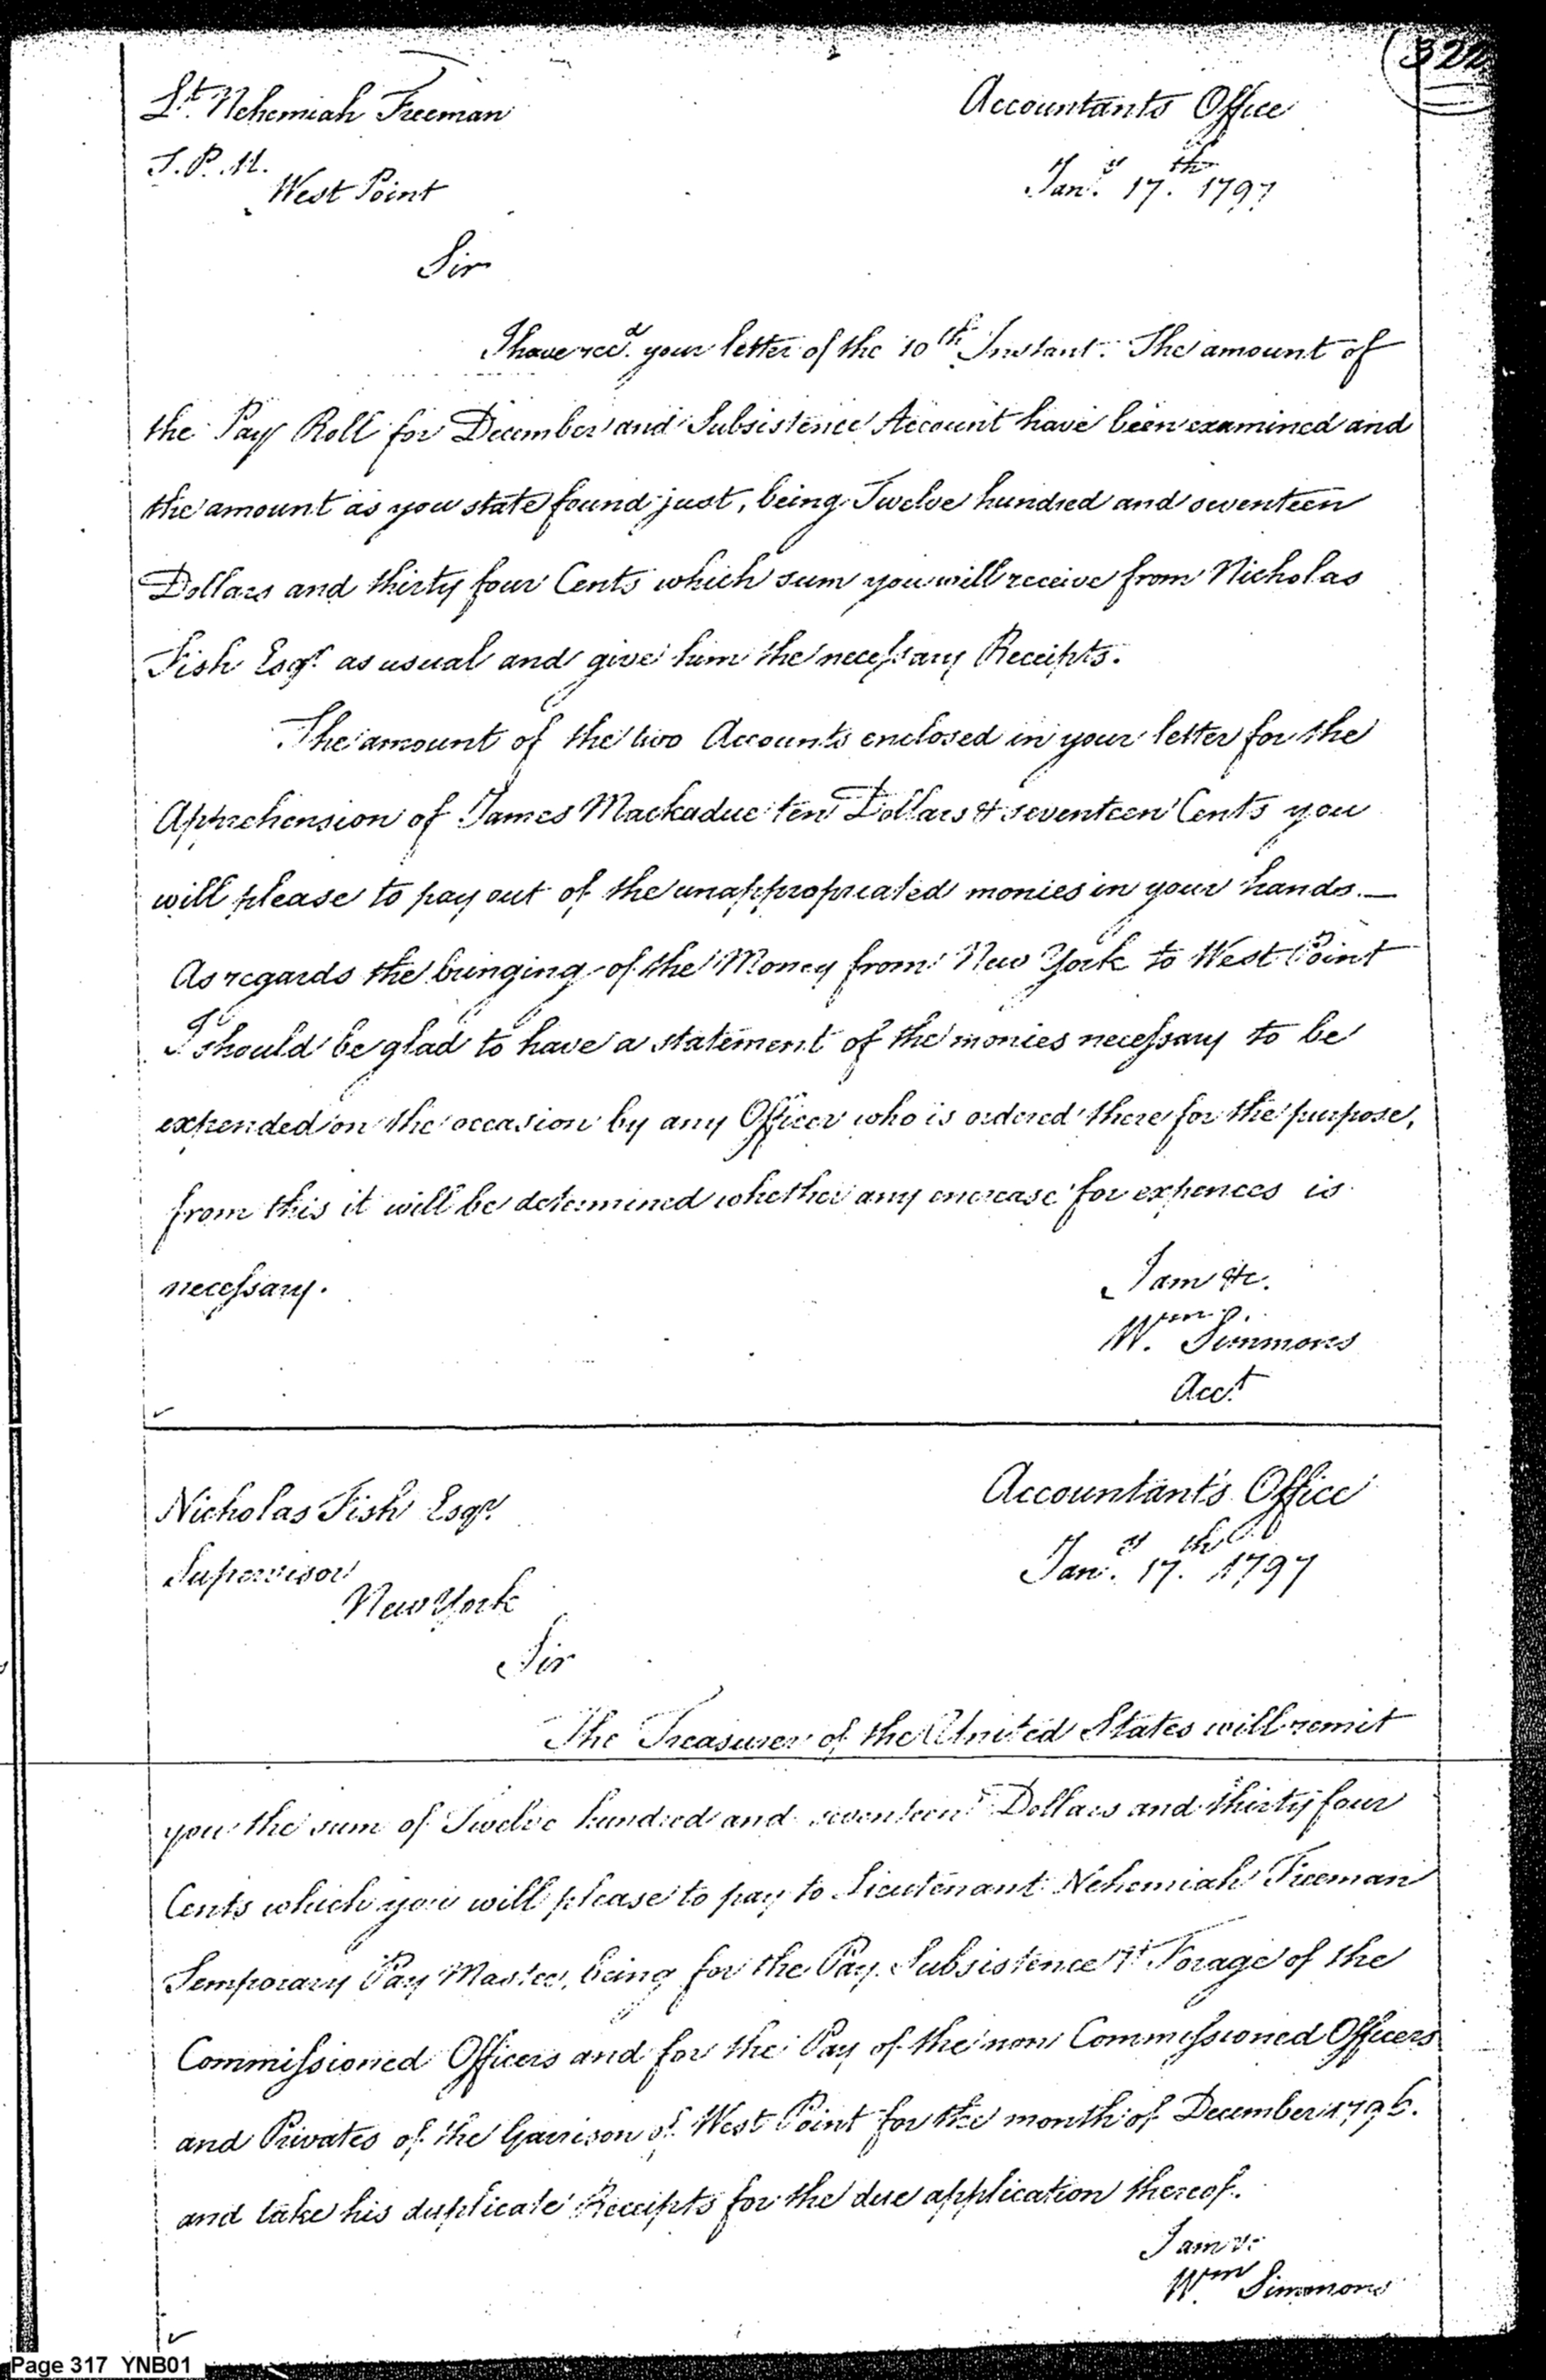 322
Lt. Nehemiah Freeman
Accountants Office
T. P. M.
West Point
Jany. 17th. 1797
Sir
I have recd. your letter of the 10th Instant. The amount of
the Pay Roll for December and Subsistence Account have been examined and
the amount as you state found just, being Twelve hundred and seventeen
Dollars and thirty four Cents which sum you will receive from Nicholas
Fish Esqr. as usual and give him the necessary Receipts.
The amount of the two Accounts enclosed in your letter for the
Apprehension of James Mackadue ten Dollars & seventeen Cents you
will please to pay out of the unappropreated monies in your hands.—
As regards the bringing of the Money from New York to West Point
I should be glad to have a statement of the monies necessary to be
expended on the occasion by any Officer who is ordered there for the purpose,
from this it will be determined whether any encrease for expences is
necessary.
I am &c.
Wm. Simmons
Acct.
Nicholas Fish Esqr.
Accountant's Office
Supervisor
New York
Jany. 17th. 1797
Sir
The Treasurer of the United States will remit
you the sum of Twelve hundred and seventeen Dollars and thirty four
Cents which you will please to pay to Lieutenant Nehemiah Freeman
Temporary Pay Master, being for the Pay Subsistence & Forage of the
Commissioned Officers and for the Pay of the non Commissioned Officers
and Privates of the Garrison of West Point for the month of December 1796.
and take his duplicate Receipts for the due application thereof.
I am &c
Wm. Simmons
Page 317 YNB01